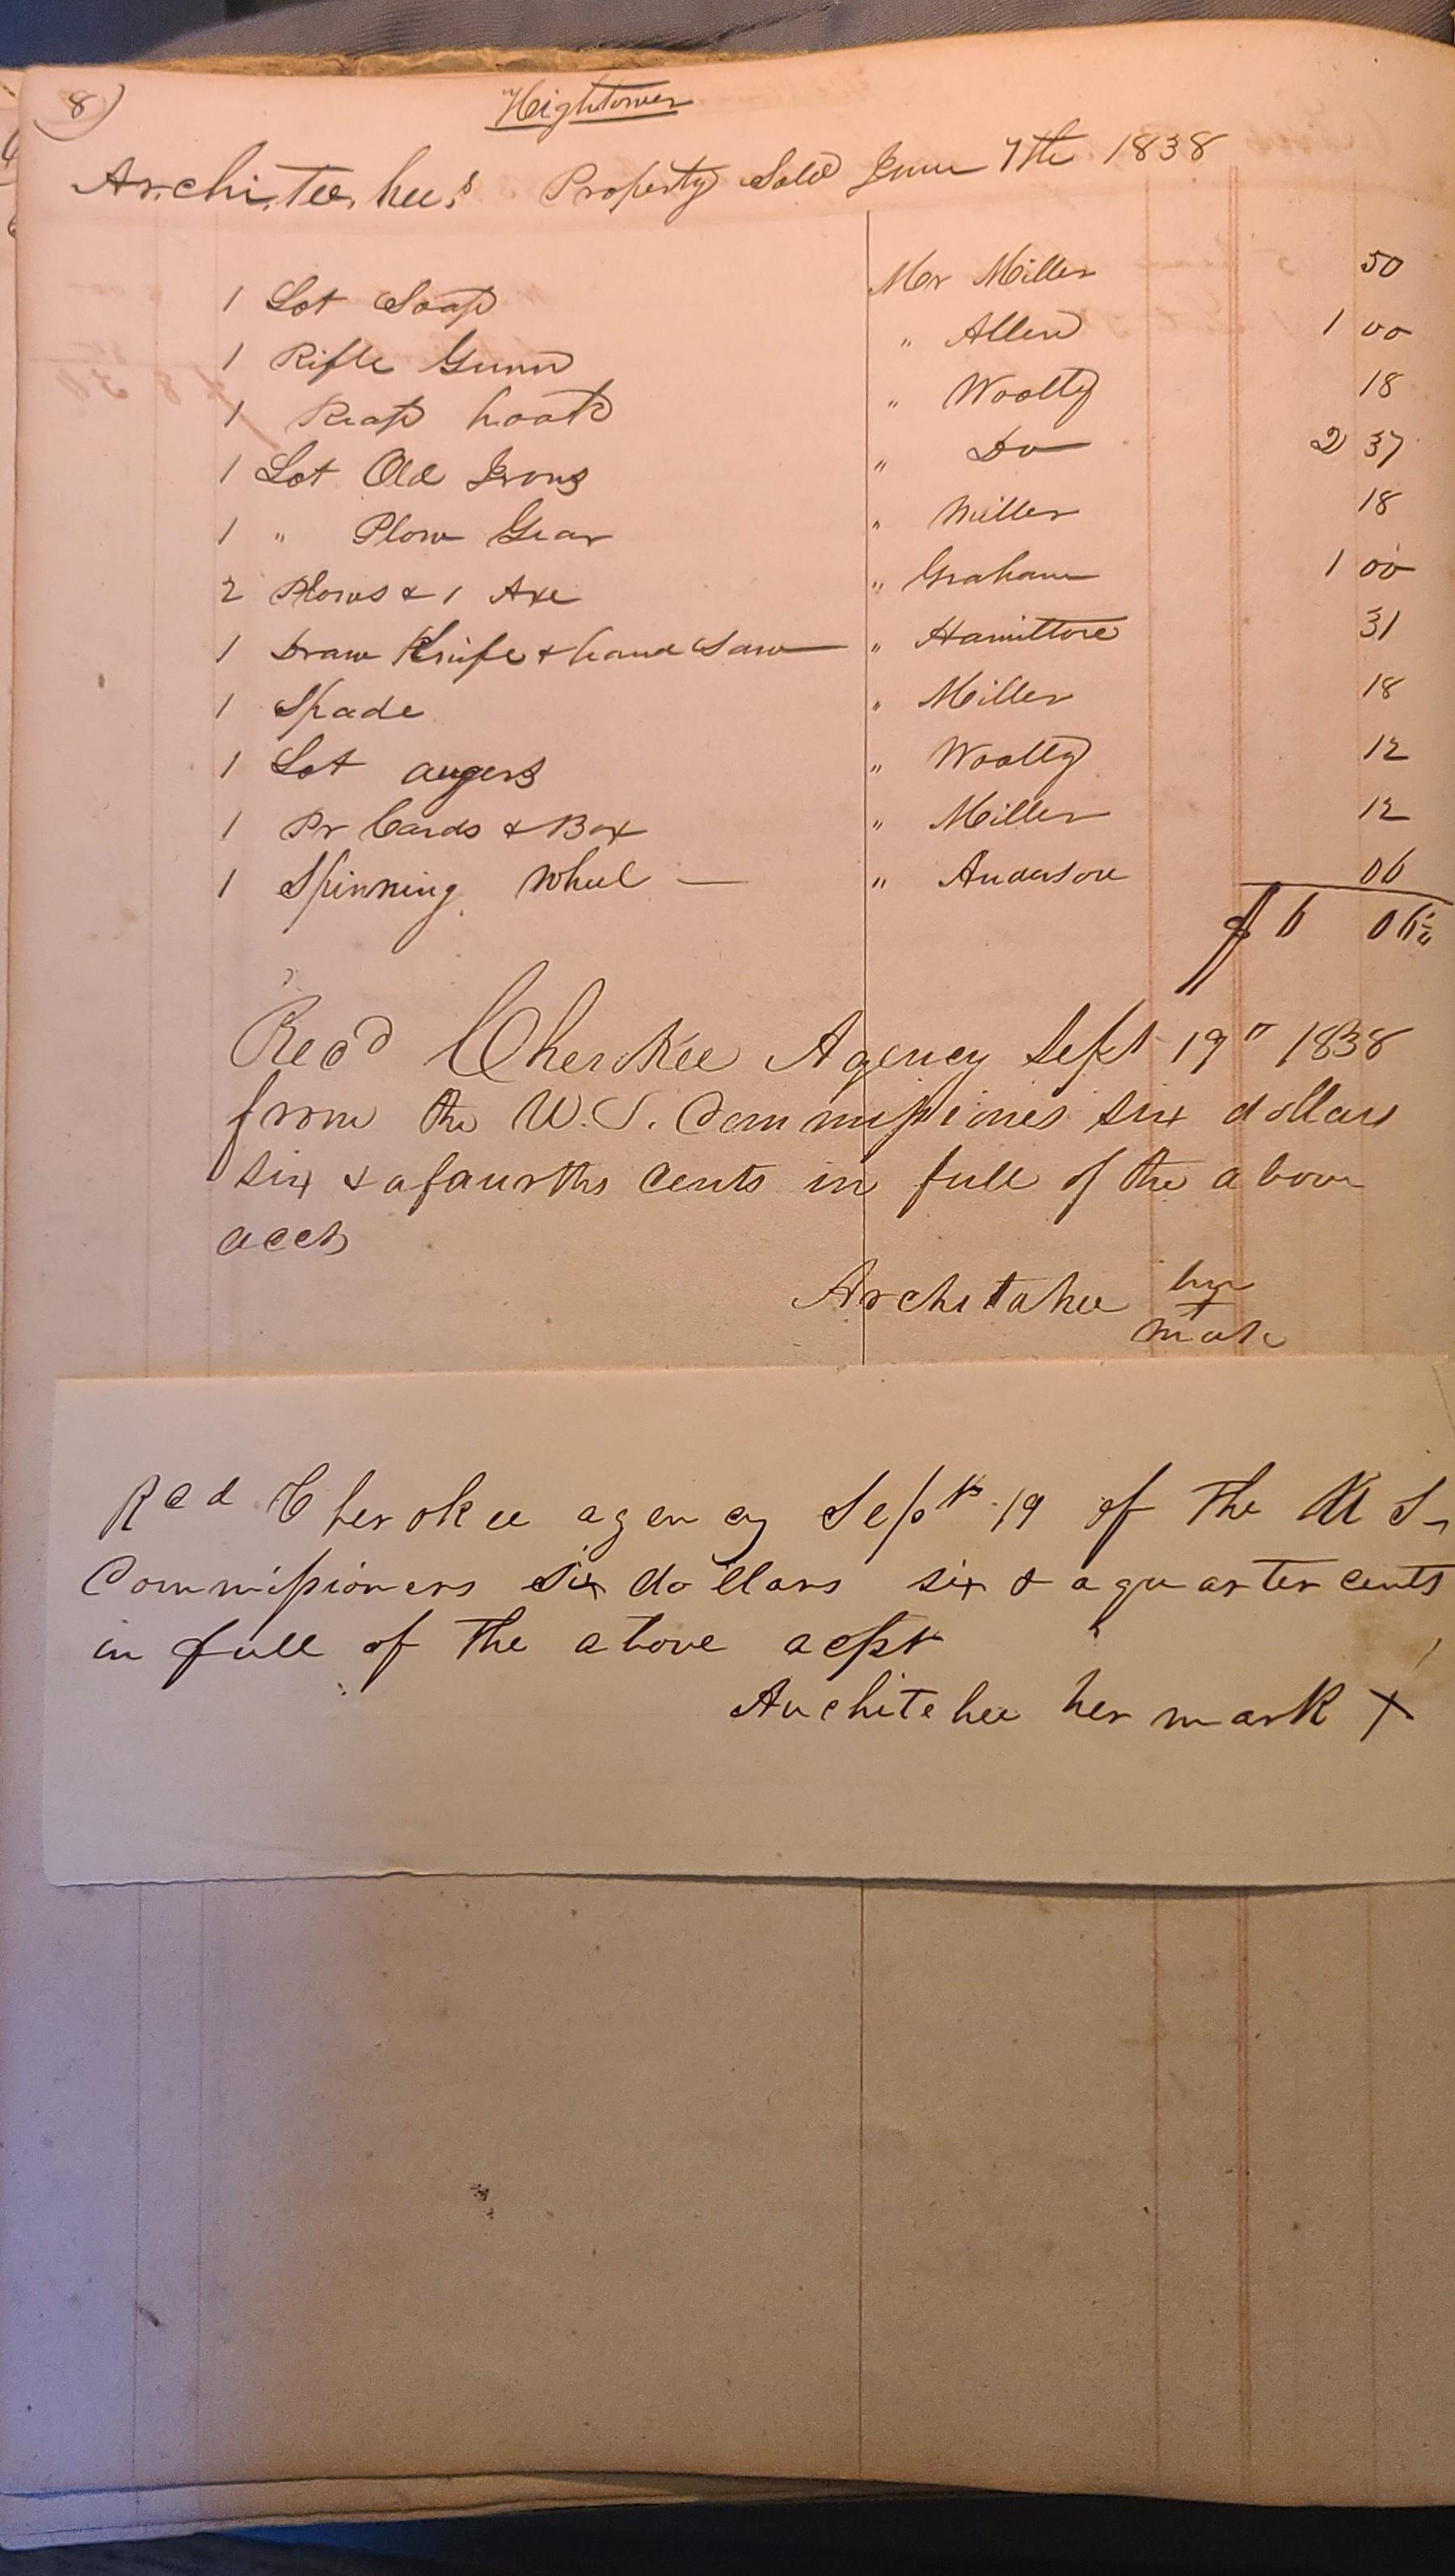 8)
Hightower
Archi,tee,hee,s Property Sold June 7th 1838
1 Lot Soap Mr Miller 50
1 Rifle Gunn " Allen 1 00
1 Reap hook " Woolly 18
1 Lot Old Irons " Do 2 37
1 " Plow Gear " Miller 18
2 Plows & 1 Axe " Graham 1 00
1 Draw Knife & hand Saw " Hamilton 31
1 Spade " Miller 18
1 Lot augers " Woolly 12
1 Pr Cards & Box " Miller 12
1 Spinning Wheel — " Anderson 06
$ 6 06¼
Recd Cherokee Agency Sept 19" 1838
from the U.S. Commissiones six dollars
six & a fourths cents in full of the above
acct
Architahee her
+
mark
Recd Cherokee agency Sept 19 of the U S
Commissioners six dollars six & a quarter cents
in full of the above acpt
Auchitehee her mark X